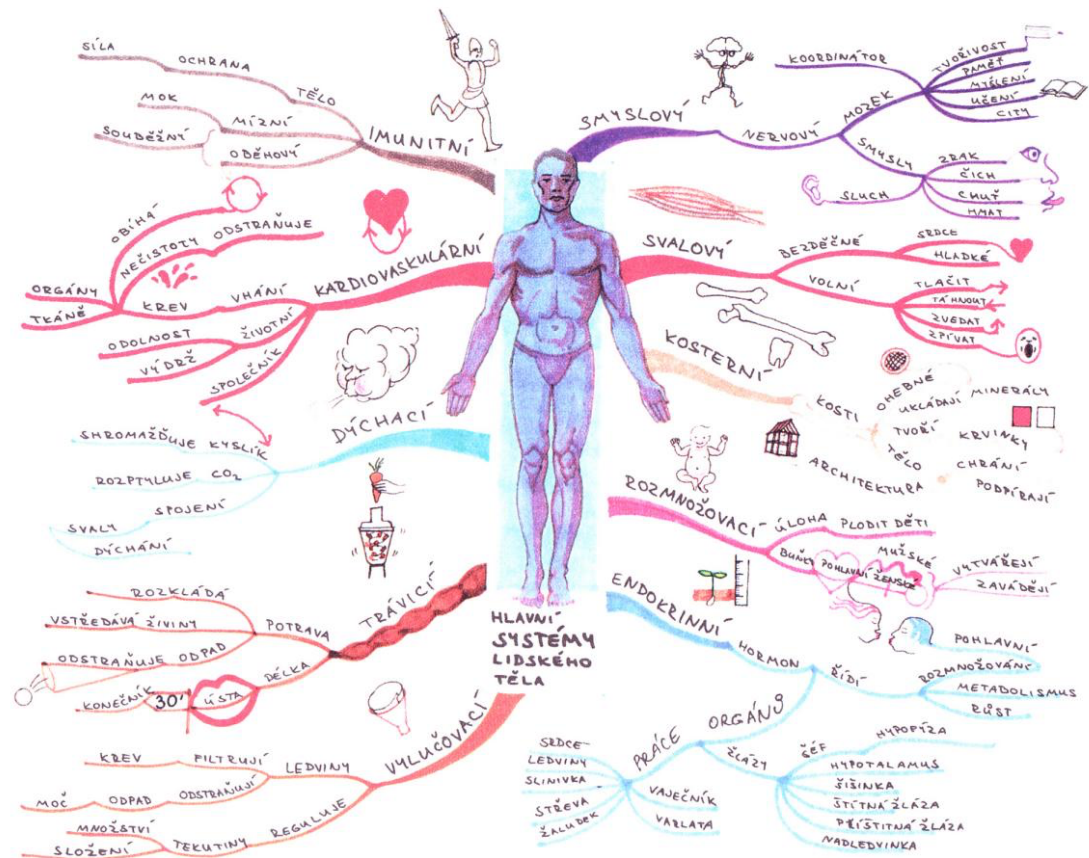 HLAVNÍ
SYSTÉMY
LIDSKÉHO
TĚLA
IMUNITNÍ
TĚLO
OCHRANA
SÍLA
MÍZNÍ
MOK
OBĚHOVÝ
SOUDĚŽNÝ
KARDIOVASKULÁRNÍ
VHÁNÍ
KREV
OBÍHÁ
NEČISTOTY
ODSTRAŇUJE
ORGÁNY
TKÁNĚ
ŽIVOTNÍ
ODOLNOST
VÝDRŽ
SPOLEČNÍK
DÝCHACÍ
KYSLÍK
SHROMAŽĎUJE
CO₂
ROZPTYLUJE
SPOJENÍ
SVALY
DÝCHÁNÍ
TRÁVICÍ
POTRAVA
ROZKLÁDÁ
VSTŘEDÁVÁ ŽIVINY
ODSTRAŇUJE ODPAD
DÉLKA
ÚSTA
30'
KONEČNÍK
VYLUČOVACÍ
LEDVINY
FILTRUJÍ
KREV
ODSTRAŇUJÍ
ODPAD
MOČ
REGULUJE
TEKUTINY
MNOŽSTVÍ
SLOŽENÍ
SMYSLOVÝ
NERVOVÝ
MOZEK
KOORDINÁTOR
TVOŘIVOST
PAMĚŤ
MYŠLENÍ
UČENÍ
CITY
SMYSLY
ZRAK
ČICH
CHUŤ
HMAT
SLUCH
SVALOVÝ
BEZDĚČNÉ
SRDCE
HLADKÉ
VOLNÍ
TLAČIT
TÁHNOUT
ZVEDAT
ZPÍVAT
KOSTERNÍ
KOSTI
OHEBNÉ
UKLÁDAJÍ
MINERÁLY
TVOŘÍ
KRVINKY
TĚLO
CHRÁNÍ
PODPÍRAJÍ
ARCHITEKTURA
ROZMNOŽOVACÍ
ÚLOHA
PLODIT DĚTI
BUŇKY
POHLAVNÍ
MUŽSKÉ
ŽENSKÉ
VYTVÁŘEJÍ
ZAVÁDĚJÍ
ENDOKRINNÍ
HORMON
ŘÍDÍ
POHLAVNÍ
ROZMNOŽOVÁNÍ
METABOLISMUS
RŮST
ORGÁNŮ
PRÁCE
SRDCE
LEDVINY
SLINIVKA
STŘEVA
ŽALUDEK
VAJEČNÍK
VARLATA
ŽLÁZY
ŠÉF
HYPOFÝZA
HYPOTALAMUS
ŠIŠINKA
ŠTÍTNÁ ŽLÁZA
PŘÍŠTITNÁ ŽLÁZA
NADLEDVINKA